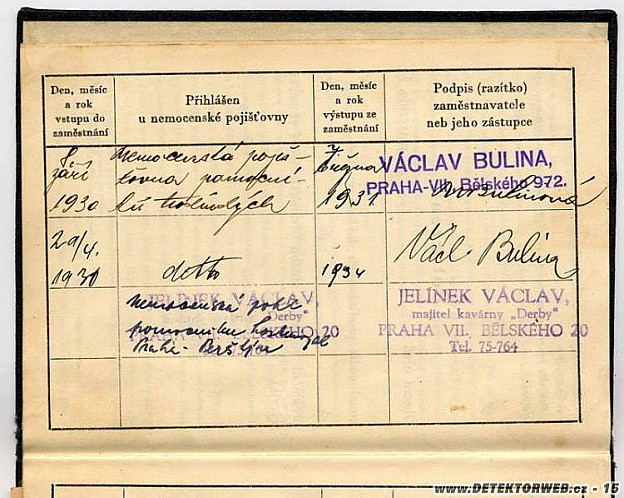 Den, měsíc
a rok
vstupu do
zaměstnání
Přihlášen
u nemocenské pojišťovny
Den, měsíc
a rok
výstupu ze
zaměstnání
Podpis (razítko)
zaměstnavatele
neb jeho zástupce
8.
září
1930
Nemocenská pojiš-
ťovna pomocní-
ků hostinských
7
října
1931
VÁCLAV BULINA,
PRAHA-VII, Bělského 972.
M. Bulinová
29/4.
1930
detto
1934
Václ Bulina
JELÍNEK VÁCLAV,
majitel kavárny „Derby"
PRAHA VII. BĚLSKÉHO 20
Tel. 75-764
JELÍNEK VÁCLAV,
„Derby"
BĚLSKÉHO 20
Nemocenská pokl
www.DETEKTORWEB.cz - 15